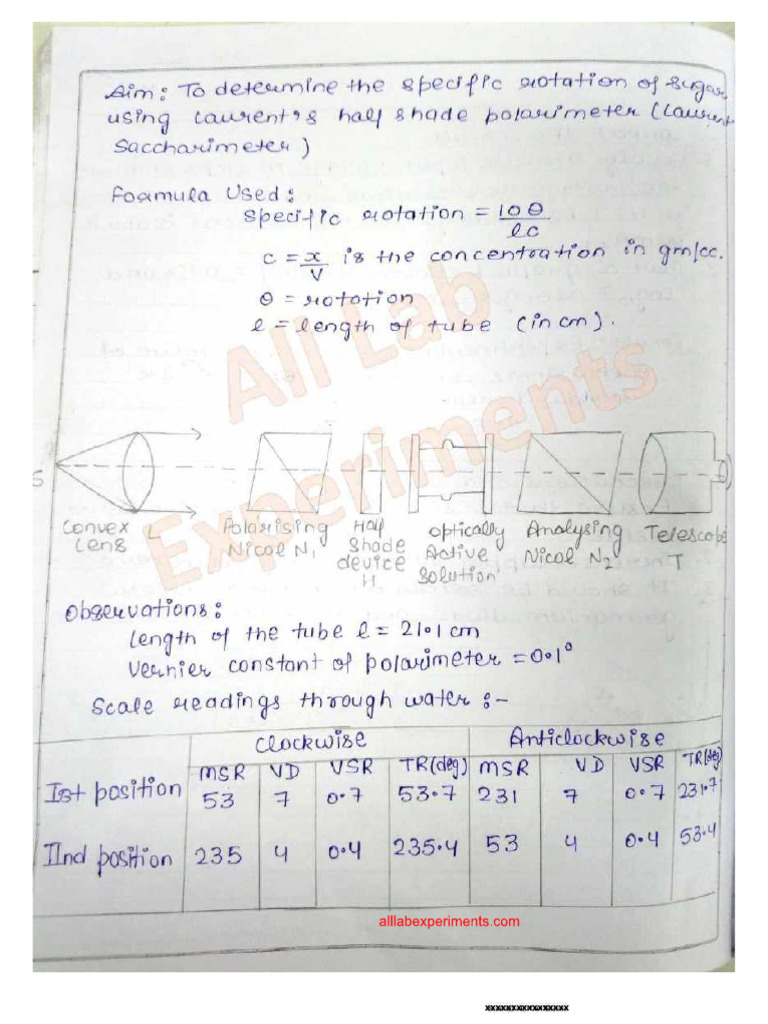 Aim: To determine the specific rotation of sugar
using Laurent's half shade polarimeter (Laurent
Saccharimeter)
Formula Used:
Specific rotation = 10θ/lc
c = x/V is the concentration in gm/cc.
θ = rotation
l = length of tube (in cm).
All Lab
Experiments
S
Convex L
Lens
Polarising
Nicol N1
Half
Shade
device
H
optically
Active
Solution
Analysing
Nicol N2
Telescope
T
Observations:
Length of the tube l = 21.1 cm
Vernier constant of polarimeter = 0.1°
Scale readings through water :-
Clockwise Anticlockwise
MSR VD VSR TR(deg) MSR VD VSR TR(deg)
Ist position 53 7 0.7 53.7 231 7 0.7 231.7
IInd position 235 4 0.4 235.4 53 4 0.4 53.4
alllabexperiments.com
xxxxxxxxxxxxxxxx